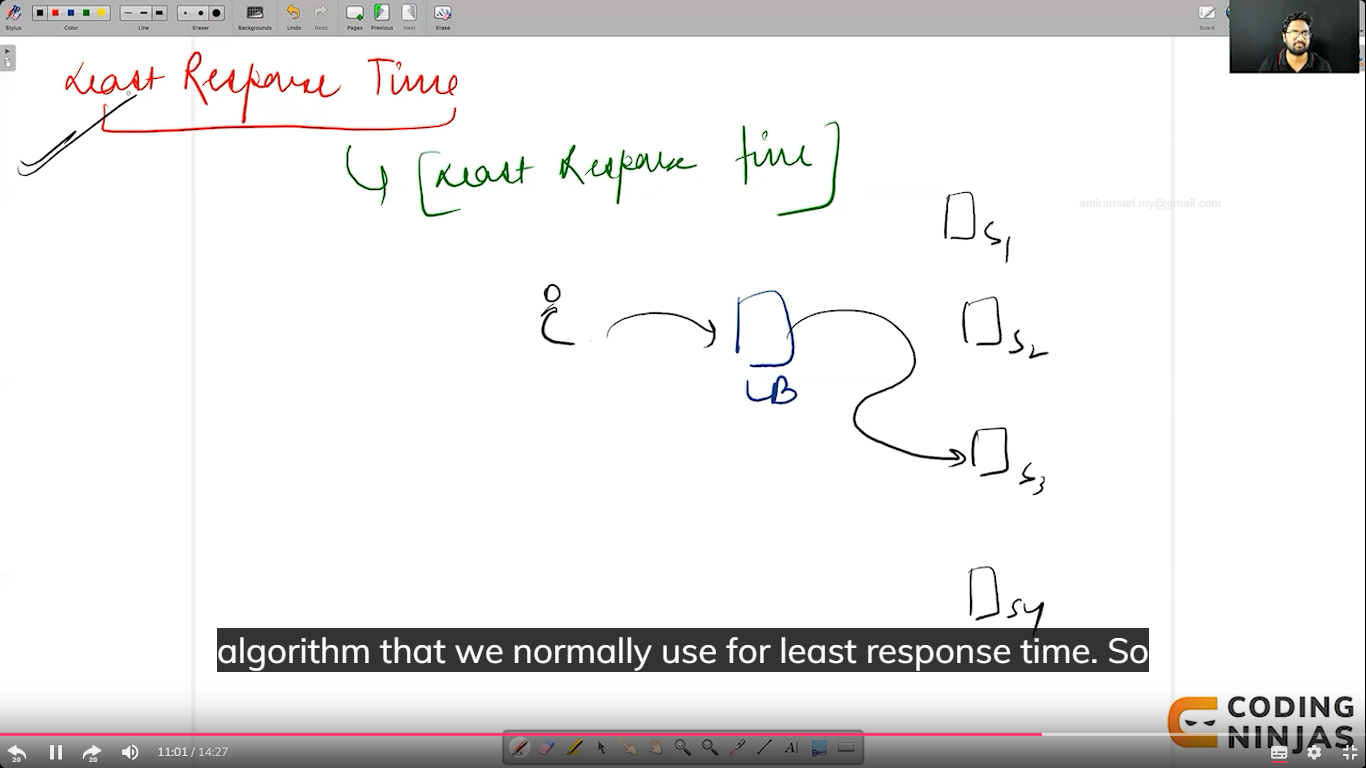 Stylus Color Line Eraser Backgrounds Undo Redo Pages Previous Next Erase Board
Least Response Time
[Least Response time]
amiransari.my@gmail.com
S1
S2
LB
S3
S4
algorithm that we normally use for least response time. So
CODING
NINJAS
20 20 11:01 / 14:27